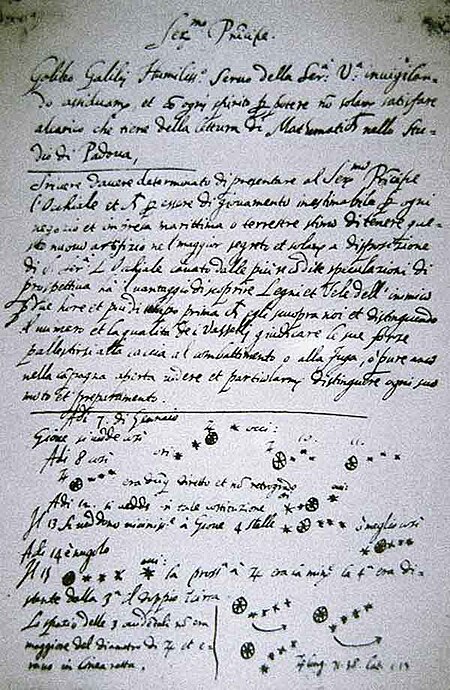 Ser.mo Prencipe.
Galileo Galilej Humiliss.o Servo della Ser.a V.a invigilan-
do assiduam.te et cō ogni spirito p potere nō solam.te satisfare
al carico che tiene della lettura di Mathematiche nello Stu-
dio di Padova,
Scrivere d'havere determinato di presentare al Ser.mo Prencipe
l'Occhiale et p essere di giovamento inestimabile p ogni
negozio et impresa marittima o terrestre stimo di tenere que-
sto nuovo artifizio nel maggior segreto et solam.te a disposizione
di S. Ser.tà L'Occhiale cavato dalle più recondite speculazioni di
prospettiva hà il vantaggio di scoprire Legni et Vele dell'inimico
p due hore et più di tempo prima ch'egli scuopra noi et distinguendo
il numero et la qualità de i Vasselli giudicare le sue forze
pallestirsi alla caccia al combattimento o alla fuga, o pure anco
nella capagna aperta vedere et particolarm.te distinguere ogni suo
moto et preparamento.
Adi 7. di Gennaio
Giove si vedde così
Adi 8 così ori
era dūq diretto et nō retrogrado
Adi 12. si vedde in tale costituzione
Il 13 si veddono vicinissi.e à Giove 4 stelle meglio così
Adi 14 è nugolo
Il 15 la pross.a à 4 era la min.e la 4.a era di-
stante dalla 3.a il doppio circa
Lo spatio delle 3 nō era
maggiore del diametro di 4 et e-
rano in linea retta.